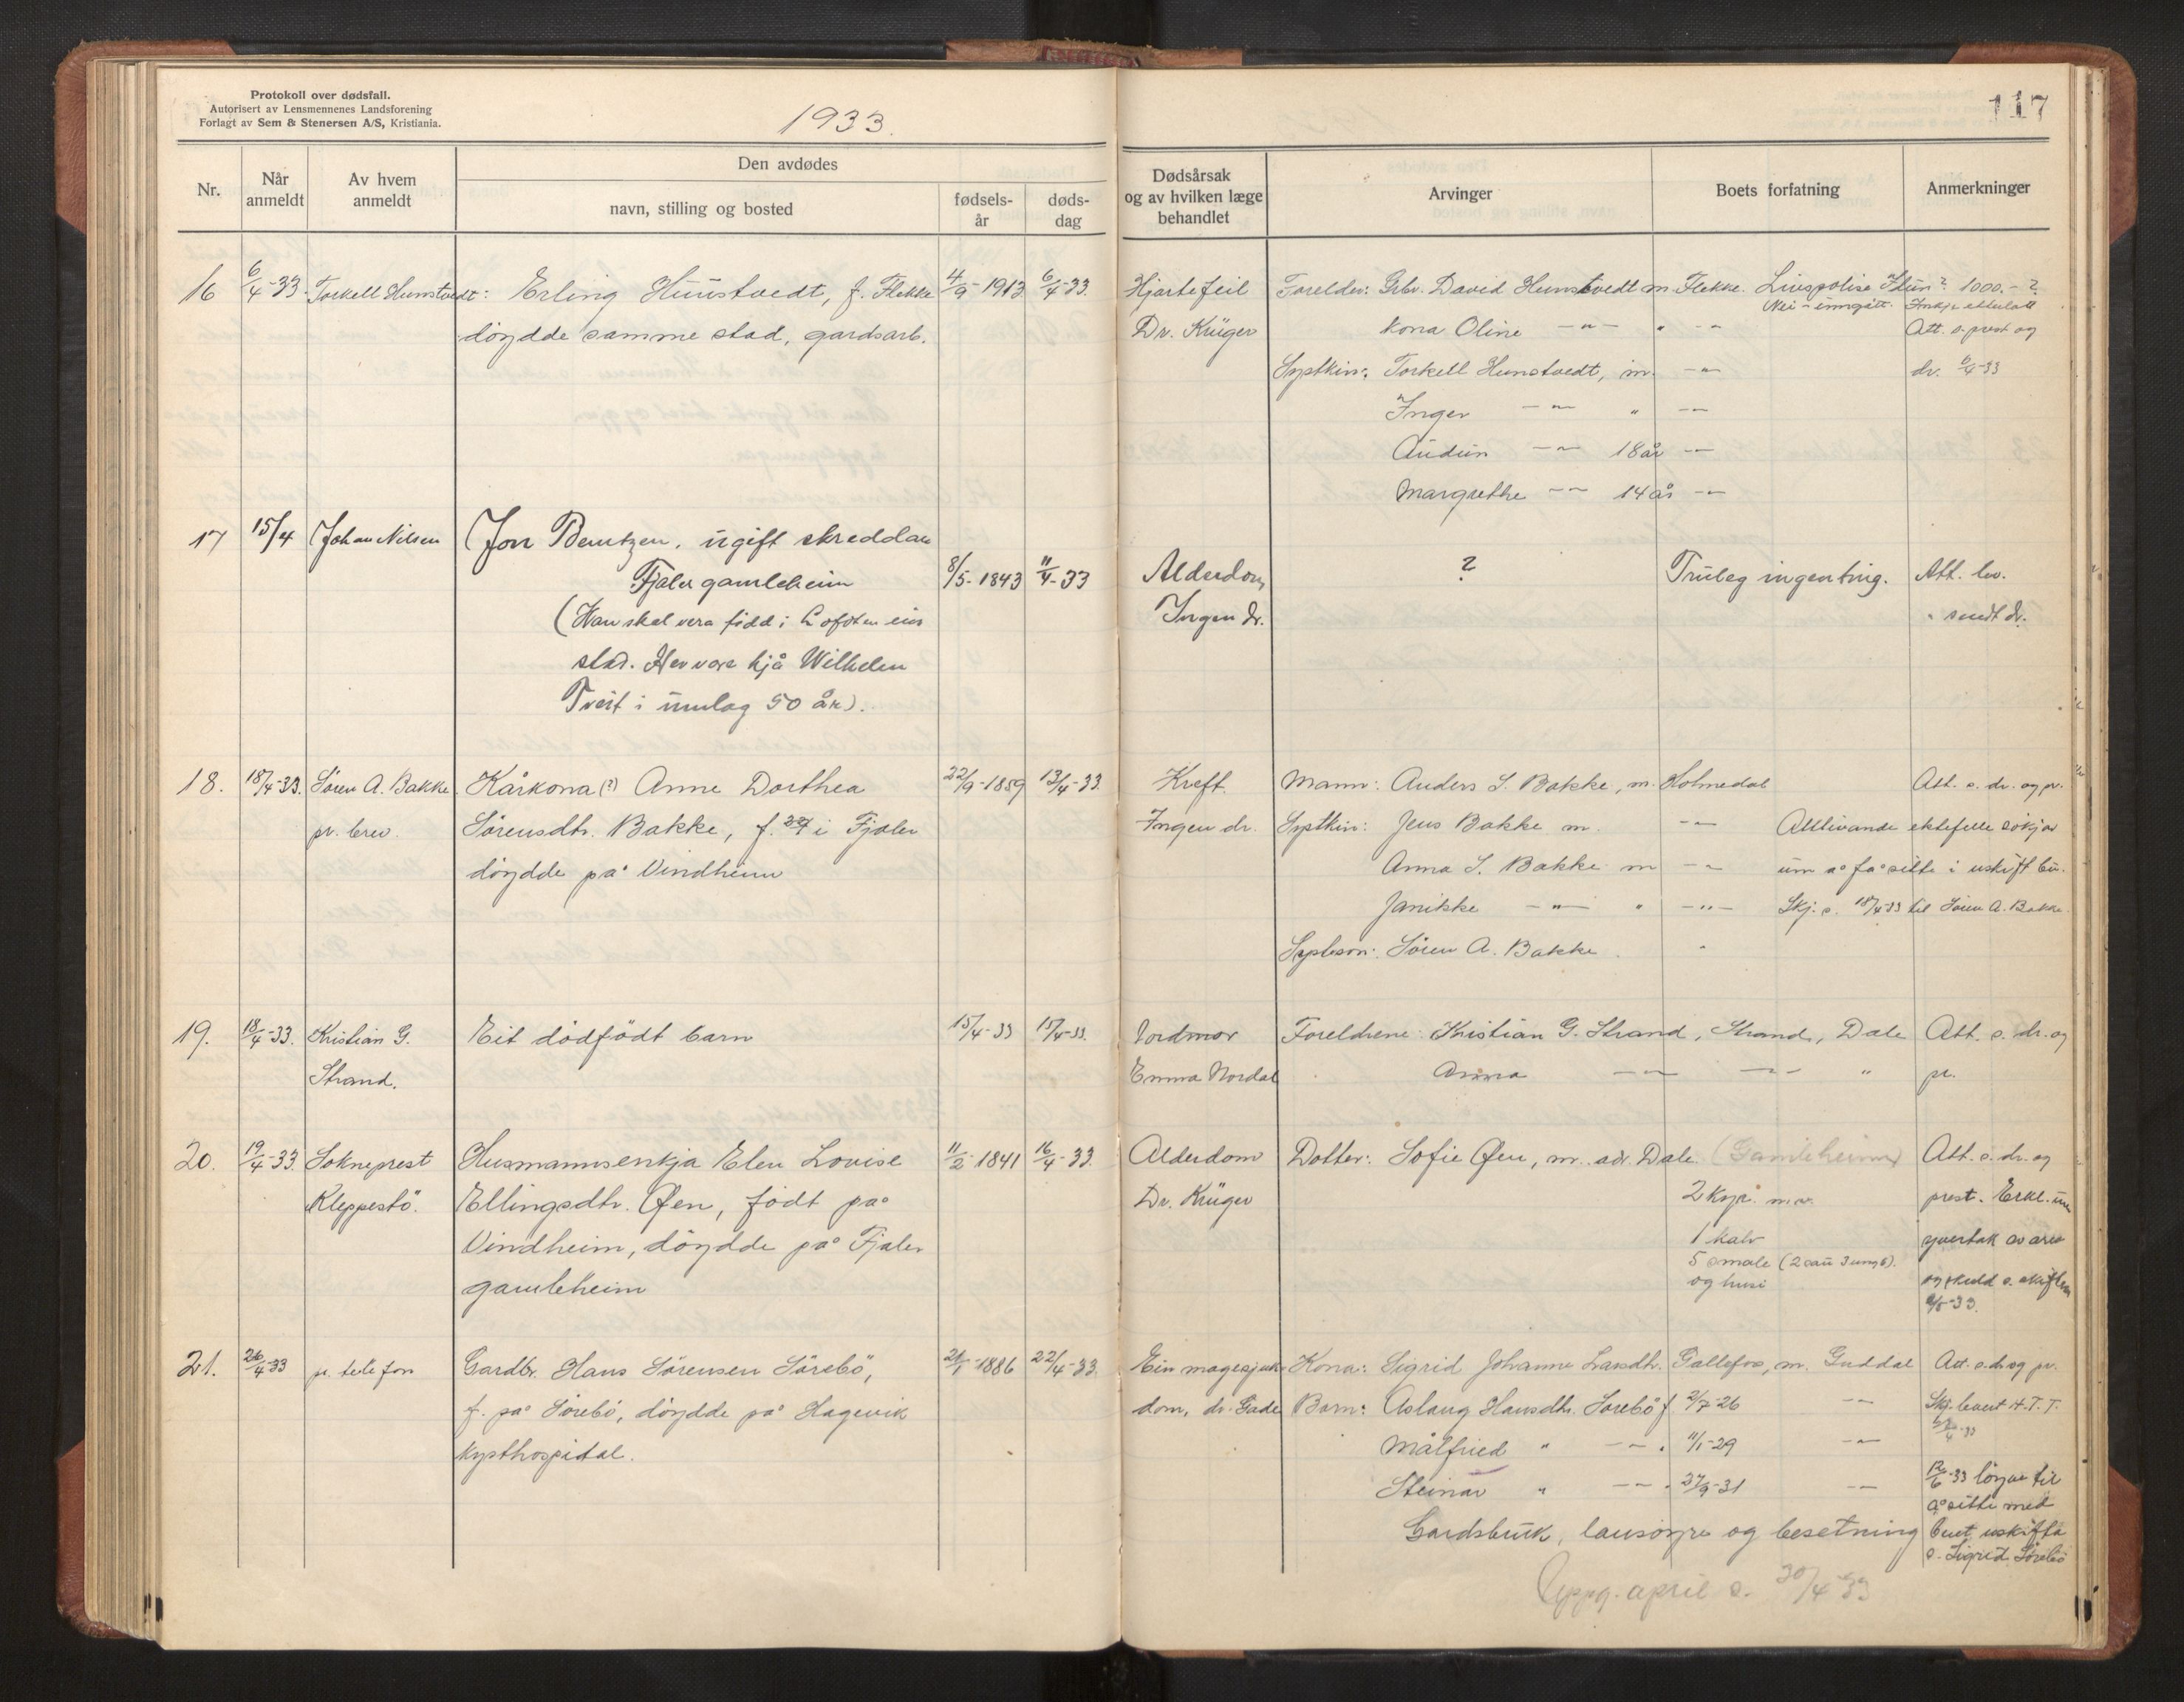 Protokoll over dødsfall.
Autorisert av Lensmennenes Landsforening
Forlagt av Sem & Stenersen A/S, Kristiania.
1933.
117
Nr.
Når anmeldt
Av hvem anmeldt
Den avdødes
navn, stilling og bosted
fødsels-år
døds-dag
Dødsårsak og av hvilken læge behandlet
Arvinger
Boets forfatning
Anmerkninger
16 6/4-33. Torkell Hunstvedt: Erling Hunstvedt, f. Flekke 4/9-1913 6/4-33. Hjartefeil Foreldr: Grbr. David Hunstvedt m. Flekke. Livspolise Idun? 1000.-?
Nei - inngått.
döydde samme stad, gardsarb. Dr. Krüger kona Oline -"- " -"- Att. s. prest og
Syskin: Torkell Hunstvedt, m. -"- dr. 6/4-33
Inger -"- " -"-
Audun -"- 18 år -"-
Margrethe -"- 14 år -"-
17 15/4 Johan Nilsen Jon Berntzen, ugift skreddar
Fjaler gamleheim 8/5-1843 11/4-33 Alderdom ? Truleg ingenting. Att. lev.
(Han skal vera född i Lofoten ein Ingen dr. " sendt dr.
stad. Hev vore hjå Wilhelm
Tveit i umlag 50 år).
18. 18/4-33. Sören A. Bakke Kårkona (?) Anne Dorthea 22/9-1859 13/4-33 Kreft. Mann: Anders S. Bakke, m. Holmedal Att. s. dr. og pr.
pr. brev. Sörensdtr. Bakke, f. i Fjaler Ingen dr. Syskin: Jens Bakke m. -"- Attlivande ektefelle sökjer
döydde på Vindheim Anna S. Bakke m -"- um å få sitte i uskift bu.
Janikke -"- " -"- Skj. s. 18/4-33 til Sören A. Bakke.
Systerson: Sören A. Bakke. "
19. 18/4-33. Kristian G. Eit dödfödt barn 15/4-33 15/4-33. Jordmor Foreldrene: Kristian G. Strand, Strand, Dale Att. s. dr. og
Strand. Emma Nordal Anna -"- -"- " pr.
20. 19/4-33. Sokneprest Husmannsenkja Elen Lovise 11/2-1841 16/4-33. Alderdom Dotter: Sofie Øen, m. adr. Dale (Gamleheimen) Att. s. dr. og
Kleppestö. Ellingsdtr. Øen, födt på Dr. Krüger 2 kyr. m.v. prest. Erkl. um
Vindheim, döydde på Fjaler 1 kalv yvertak av arv
5 smale (2 sau 3 ung).
gamleheim og husi og skuld s. skifteu
33.
21. 26/4-33 pr. telefon Gardbr. Hans Sörensen Sörebö, 21/1-1886 22/4-33. Ein magesjuk- Kona: Sigrid Johanne Larsdtr. Gallefos, m. Guddal Att. s. dr. og pr.
f. på Sörebö, döydde på Hagevik dom, dr. Gade Born: Aslaug Hansdtr. Sörebö f. 2/7-26 -"- Skj. levert H. T. T.
4-33
kysthospital. Målfried " -"- . 11/1-29 -"-
Steinar " -"- . 27/9-31 -"- 12/6-33 löyve til
å sitte med
Gardsbruk, lausöyre og besetning buet uskifta
s. Sigrid Sörebö
Uppg. april s. 30/4-33